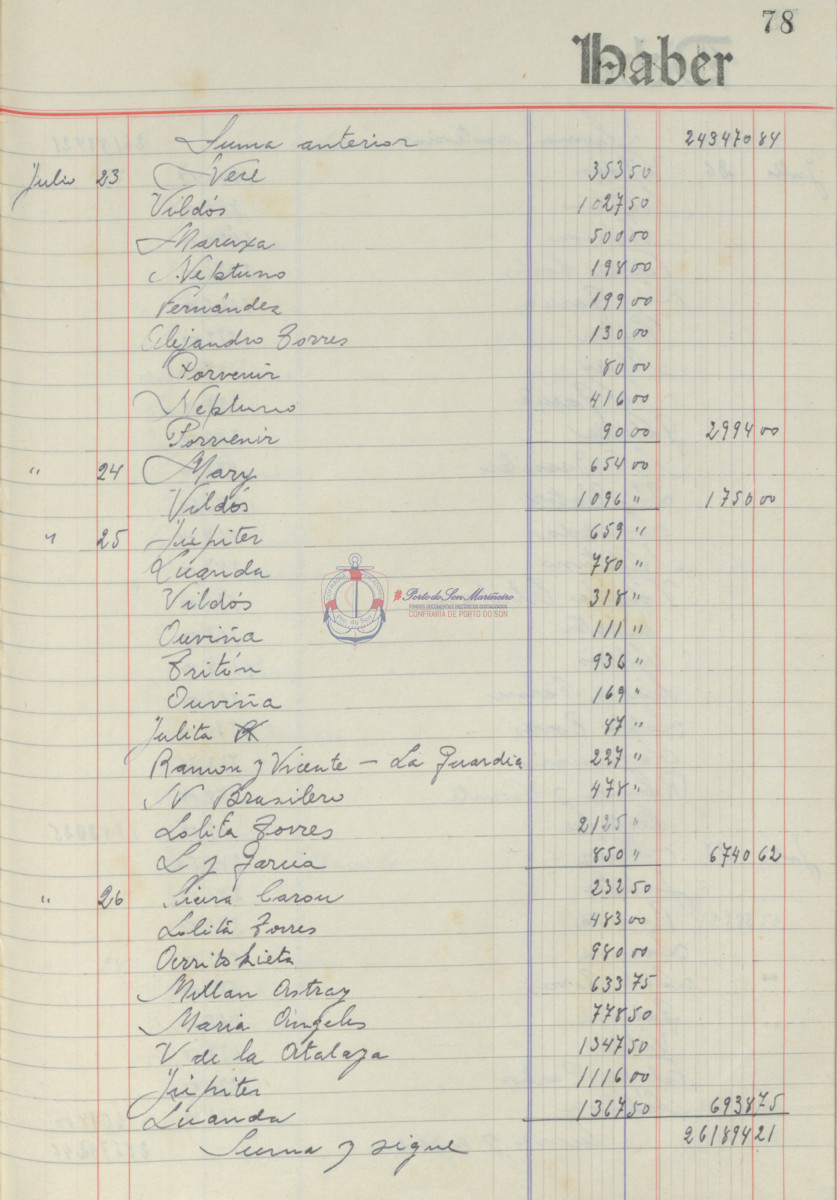 78
Haber
Suma anterior 243470 84
Julio 23 Vere 353 50
Vildós 1027 50
Maruxa 500 00
Neptuno 198 00
Fernández 199 00
Alejandro Torres 130 00
Porvenir 80 00
Neptuno 416 00
Porvenir 90 00 2994 00
" 24 Mary 654 00
Vildós 1096 " 1750 00
" 25 Júpiter 659 "
Luanda 780 "
Vildós 318 "
Ouviña 111 "
Tritón 936 "
Ouviña 169 "
Julita 47 "
Ramon y Vicente — La Guardia 227 "
N Brasilero 478 "
Lolita Torres 2125 "
L y Garcia 850 " 6740 62
" 26 Sieira Carou 232 50
Lolita Torres 483 00
Arritokieta 980 00
Millan Astray 633 75
Maria Angeles 778 50
V de la Atalaya 1347 50
Júpiter 1116 00
Luanda 1367 50 6938 75
Suma y sigue 261894 21
COFRADIA PESCADORES
Pto. do Son
#Porto do Son Mariñeiro
FONDOS DOCUMENTAIS HISTÓRICOS DIXITALIZADOS
CONFRARÍA DE PORTO DO SON